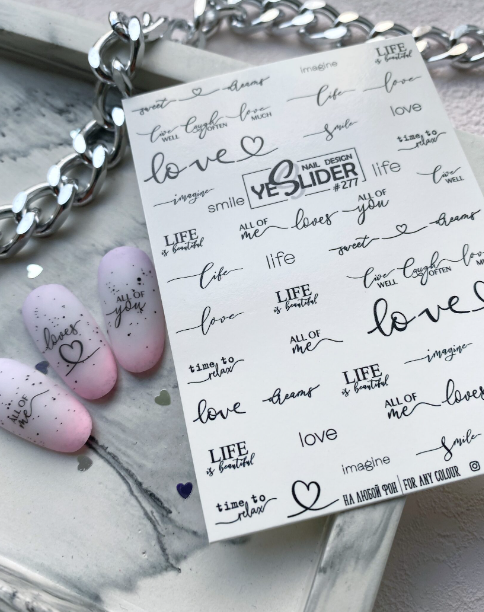 LIFE
is beautiful
imagine
sweet dreams
life
love
live WELL laugh OFTEN love MUCH
love
smile
time to
relax
love
NAIL DESIGN
YESLIDER
#277
life
live WELL
imagine
smile
ALL OF
me loves
ALL OF
you
LIFE
is beautiful
sweet dreams
life
life
live WELL laugh OFTEN love MUCH
LIFE
is beautiful
love
love
ALL OF
me
time to
relax
imagine
LIFE
is beautiful
love
dreams
ALL OF
me loves
love
LIFE
is beautiful
smile
imagine
time to
relax
НА ЛЮБОЙ ФОН | FOR ANY COLOUR
ALL OF
you
loves
ALL OF
me